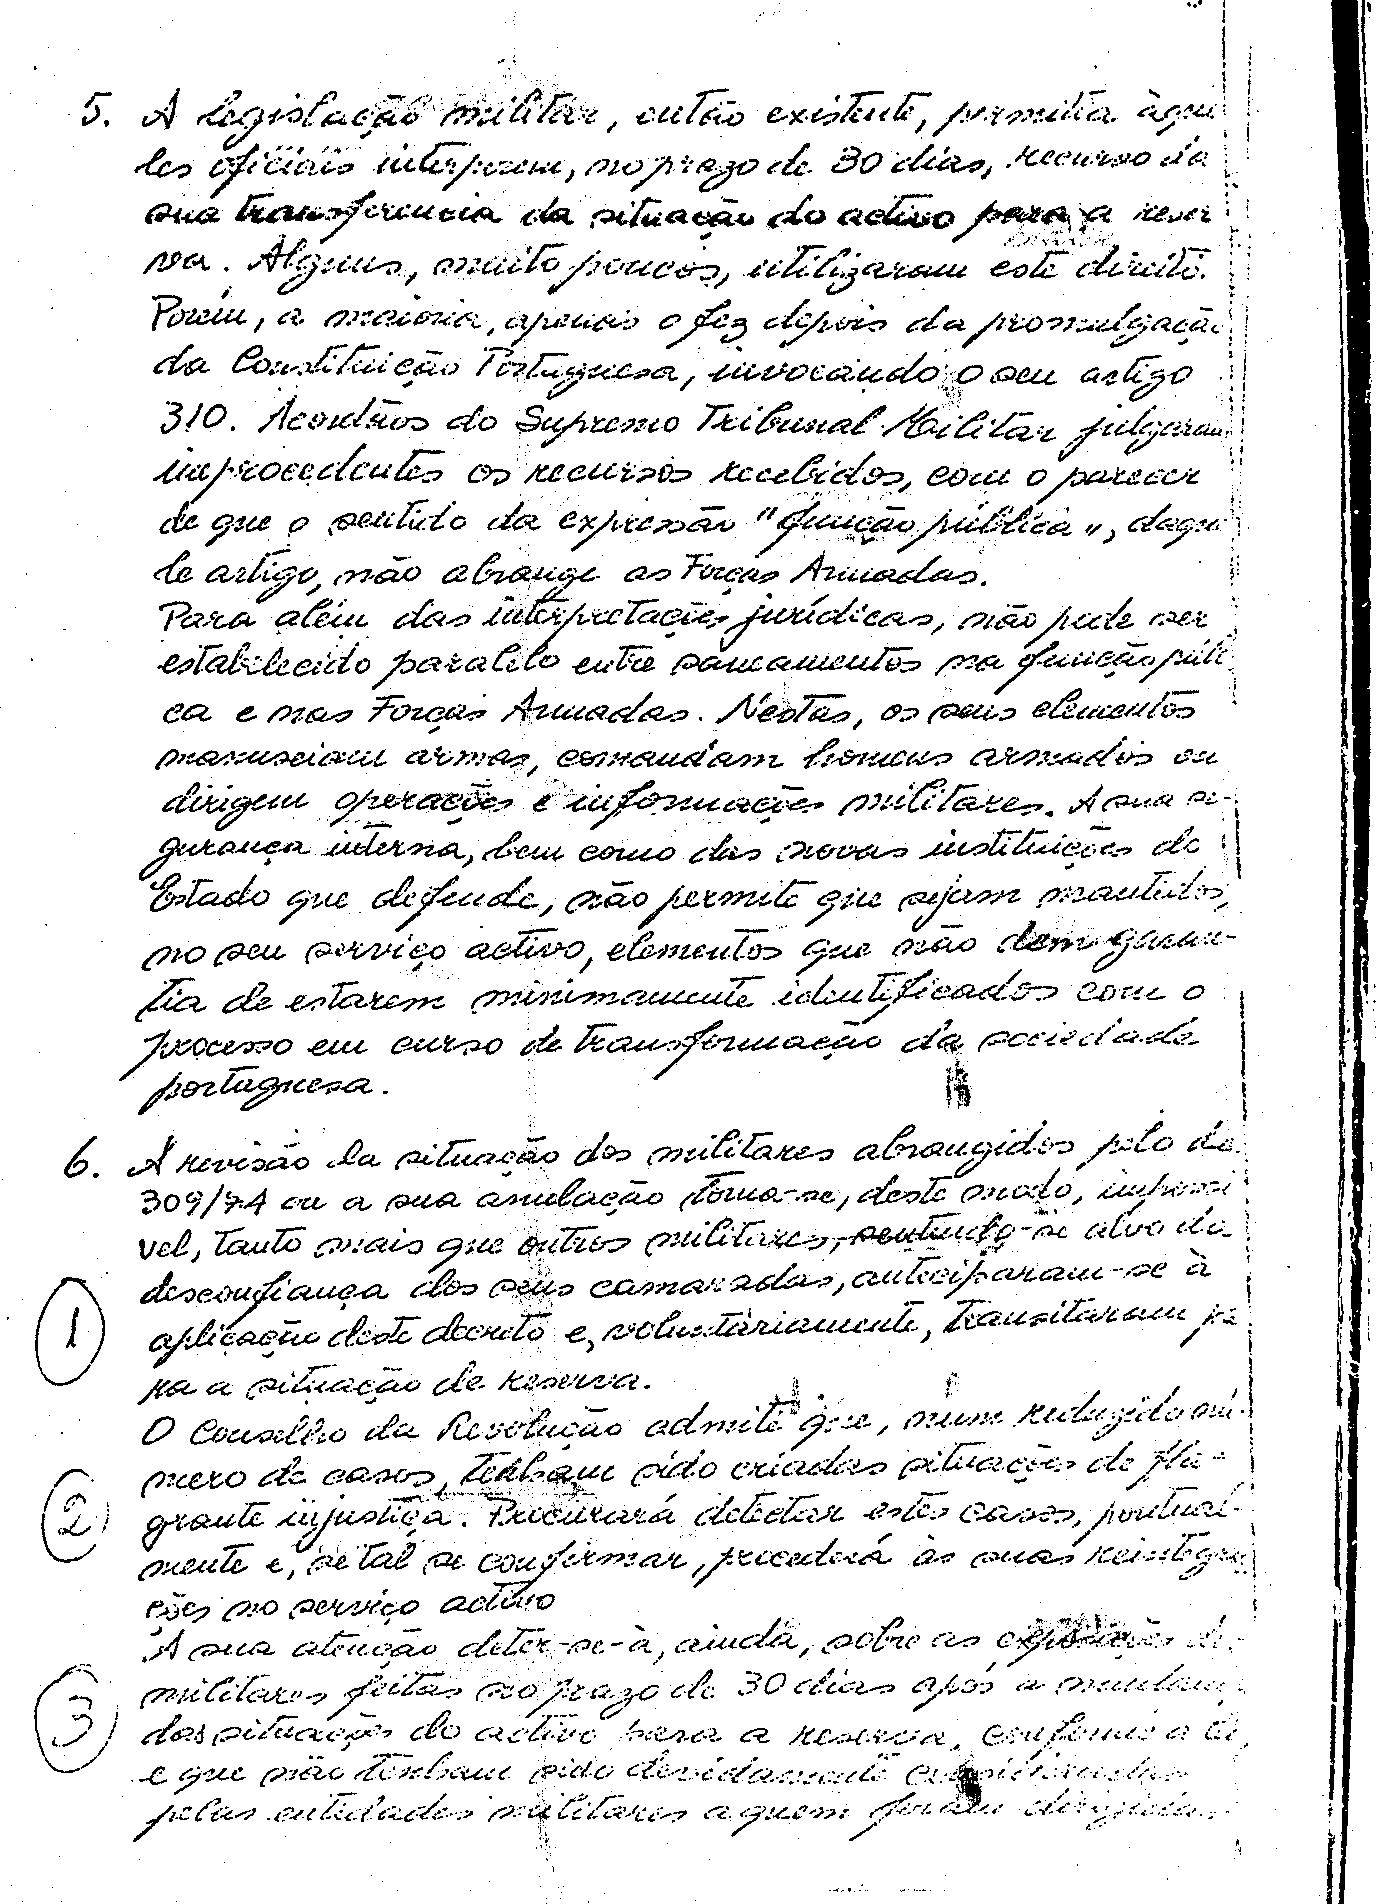 5. A legislação militar, então existente, permitia àque
les oficiais interporem, no prazo de 30 dias, recurso da
sua transferencia da situação do activo para a reser
va. Alguns, muito poucos, utilizaram este direito.
Porém, a maioria, apenas o fez depois da promulgação
da Constituição Portuguesa, invocando o seu artigo
310. Acordãos do Supremo Tribunal Militar julgaram
improcedentes os recursos recebidos, com o parecer
de que o sentido da expressão "função pública", daque
le artigo, não abrange as Forças Armadas.
Para além das interpretações jurídicas, não pode ser
estabelecido paralelo entre saneamentos na função públi
ca e nas Forças Armadas. Nestas, os seus elementos
manuseiam armas, comandam homens armados ou
dirigem operações e informações militares. A sua se-
gurança interna, bem como das novas instituições do
Estado que defende, não permite que sejam mantidos,
no seu serviço activo, elementos que não dem garan-
tia de estarem minimamente identificados com o
processo em curso de transformação da sociedade
portuguesa.
6. A revisão da situação dos militares abrangidos pelo dl
309/74 ou a sua anulação torna-se, deste modo, impossi
vel, tanto mais que outros militares, sentindo-se alvo da
desconfiança dos seus camaradas, anteciparam-se à
1 aplicação deste decreto e, voluntàriamente, transitaram pa
ra a situação de reserva.
O Conselho da Revolução admite que, num reduzido nú-
mero de casos, tenham sido criadas situações de fla-
2 grante injustiça. Procurará detectar estes casos, pontual-
mente e, se tal se confirmar, procederá às suas reintegra
ções no serviço activo
A sua atenção deter-se-à, ainda, sobre as exposições de
militares feitas no prazo de 30 dias após a mudança
3 das situações do activo para a reserva, conforme a lei,
e que não tenham sido devidamente consideradas
pelas entidades militares a quem foram dirigidas.